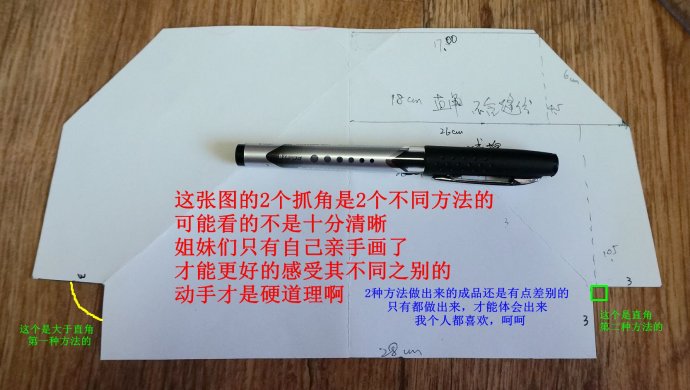 17.00
6cm
18cm 直单 不含缝份
26cm
这张图的2个抓角是2个不同方法的
可能看的不是十分清晰
姐妹们只有自己亲手画了
才能更好的感受其不同之别的
动手才是硬道理啊
2种方法做出来的成品还是有点差别的
只有都做出来，才能体会出来
我个人都喜欢，呵呵
3
3
3
10.5
这个是大于直角
第一种方法的
这个是直角
第二种方法的
28cm